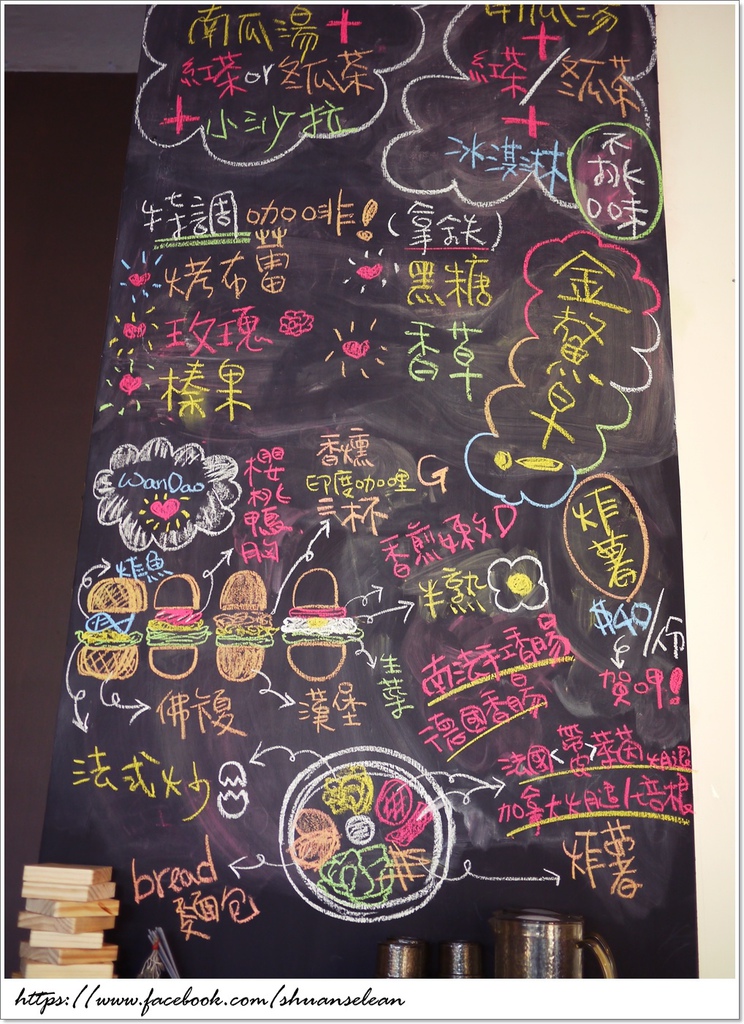 南瓜湯+
紅茶or冬瓜茶
+小沙拉
南瓜湯
+
紅茶/冬瓜茶
+
冰淇淋
不
挑
口味
特調咖啡!(拿鐵)
烤布蕾
黑糖
玫瑰
香草
榛果
金鰲早
WanDao
櫻桃鴨胸
香燻
印度咖哩
三杯
G
香煎嫩D
炸魚
半熟
炸薯
$40/份
賀呷!
生菜
佛複
漢堡
南法香腸
德國香腸
法式炒
法國<帶皮>萊茵火腿
加拿大火腿/培根
炸薯
bread
麵包
https://www.facebook.com/shuanselean